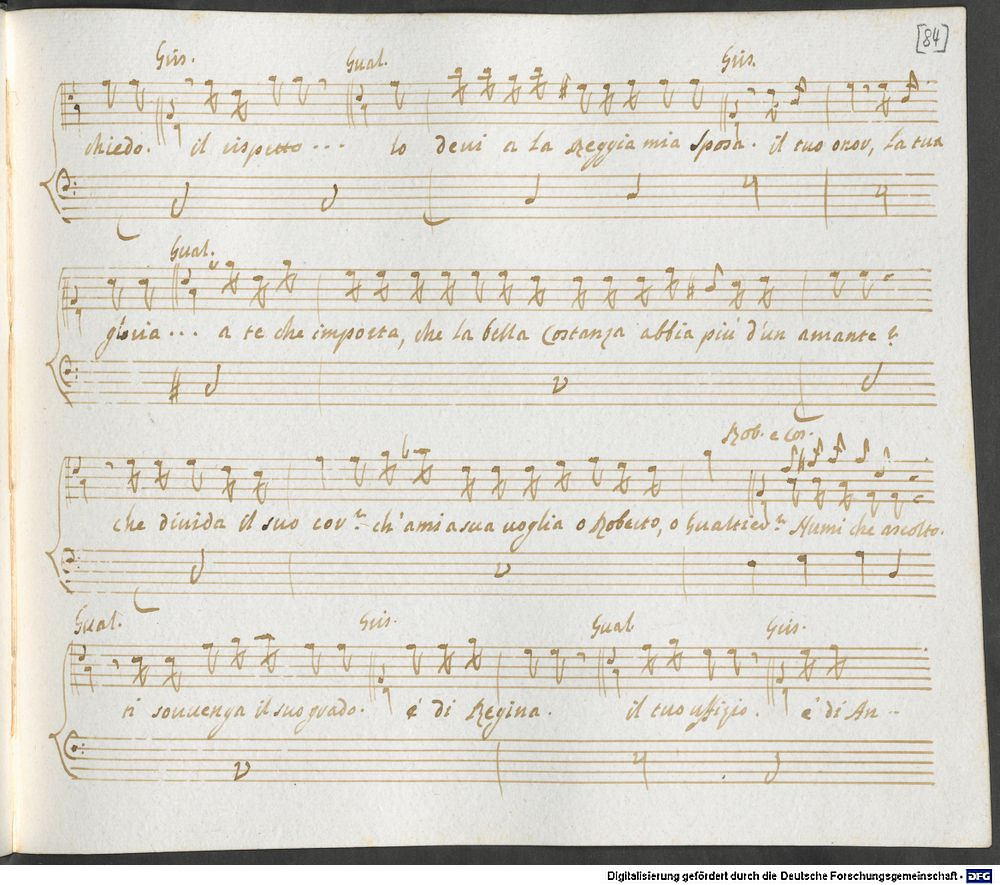 [84]
Gris. Gual. Gris.
chiedo. il rispetto... lo devi a la Reggia mia sposa. il tuo onor, la tua
Gual.
gloria... a te che importa, che la bella Costanza abbia più d'un amante?
Rob. e Cos.
che divida il suo cor? ch'ami a sua voglia o Roberto, o Gualtier? Numi che ascolto.
Gual. Gris. Gual. Gris.
ti souuenga il suo grado. è di Regina. il tuo uffizio. è di An-
Digitalisierung gefördert durch die Deutsche Forschungsgemeinschaft - DFG